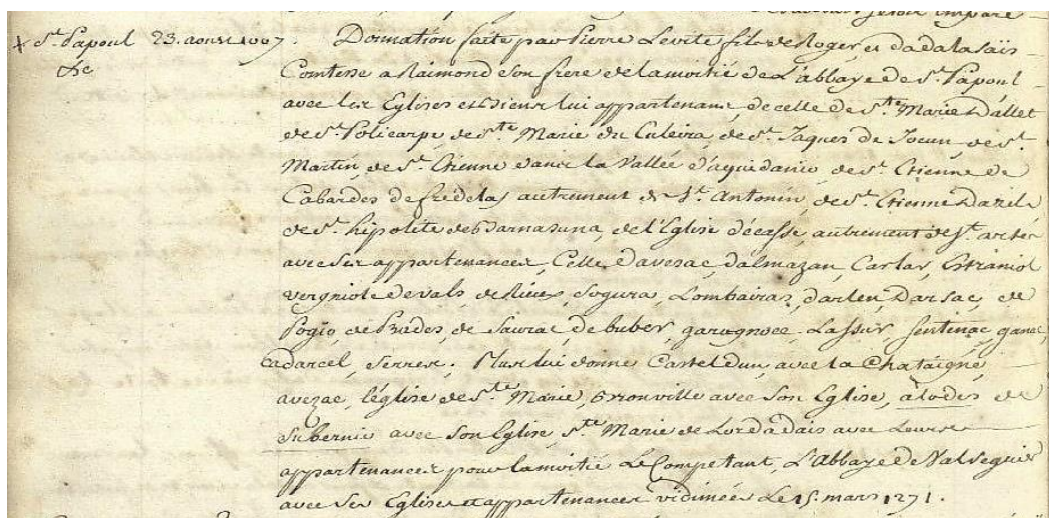 + St. Papoul 23. aoust 1007. Donnation faite par Pierre Levite fils de Roger, et dadalasais
&c Comtesse a Raimond son frere de la moitié de L'abbaye de St. Papoul
avec les Eglises et Dieme lui appartenans, de celle de Ste Marie Dallet
de St. Policarpe, de Ste Marie du Cubeira, de St. Jaques de Joeun, de St.
Martin, de St. Etienne dans la Vallée d'aquidanie, de St. Etienne de
Cabardes de fredelas autrement de St. Antonin, de St. Etienne Dazile
de St. hipolite de Barnasuna, de l'Eglise décasse, autrement de St. artes
avec ses appartenances, Celle Davezac, dalmazan Carlar, Estraniol
vergniole devals de Rieux, Segura, Lombairas, darlen, Darsac, de
Pogio, de Prades, de Saurac, de buber, garagnoce, Lassur, sentinac, ganac,
cadarcel, Serres. Plus lui donne Casteldun, avec la Chataigné,
avezac, léglise de Ste Marie, brionville avec son Eglise, alodes de
Subernie avec son Eglise, Ste Marie de Lordadais avec Leurs
appartenances pour la moitié Le Competant, L'abbaye De Valseguier
avec ses Eglises et appartenances vidimées Le 15. mars 1271.